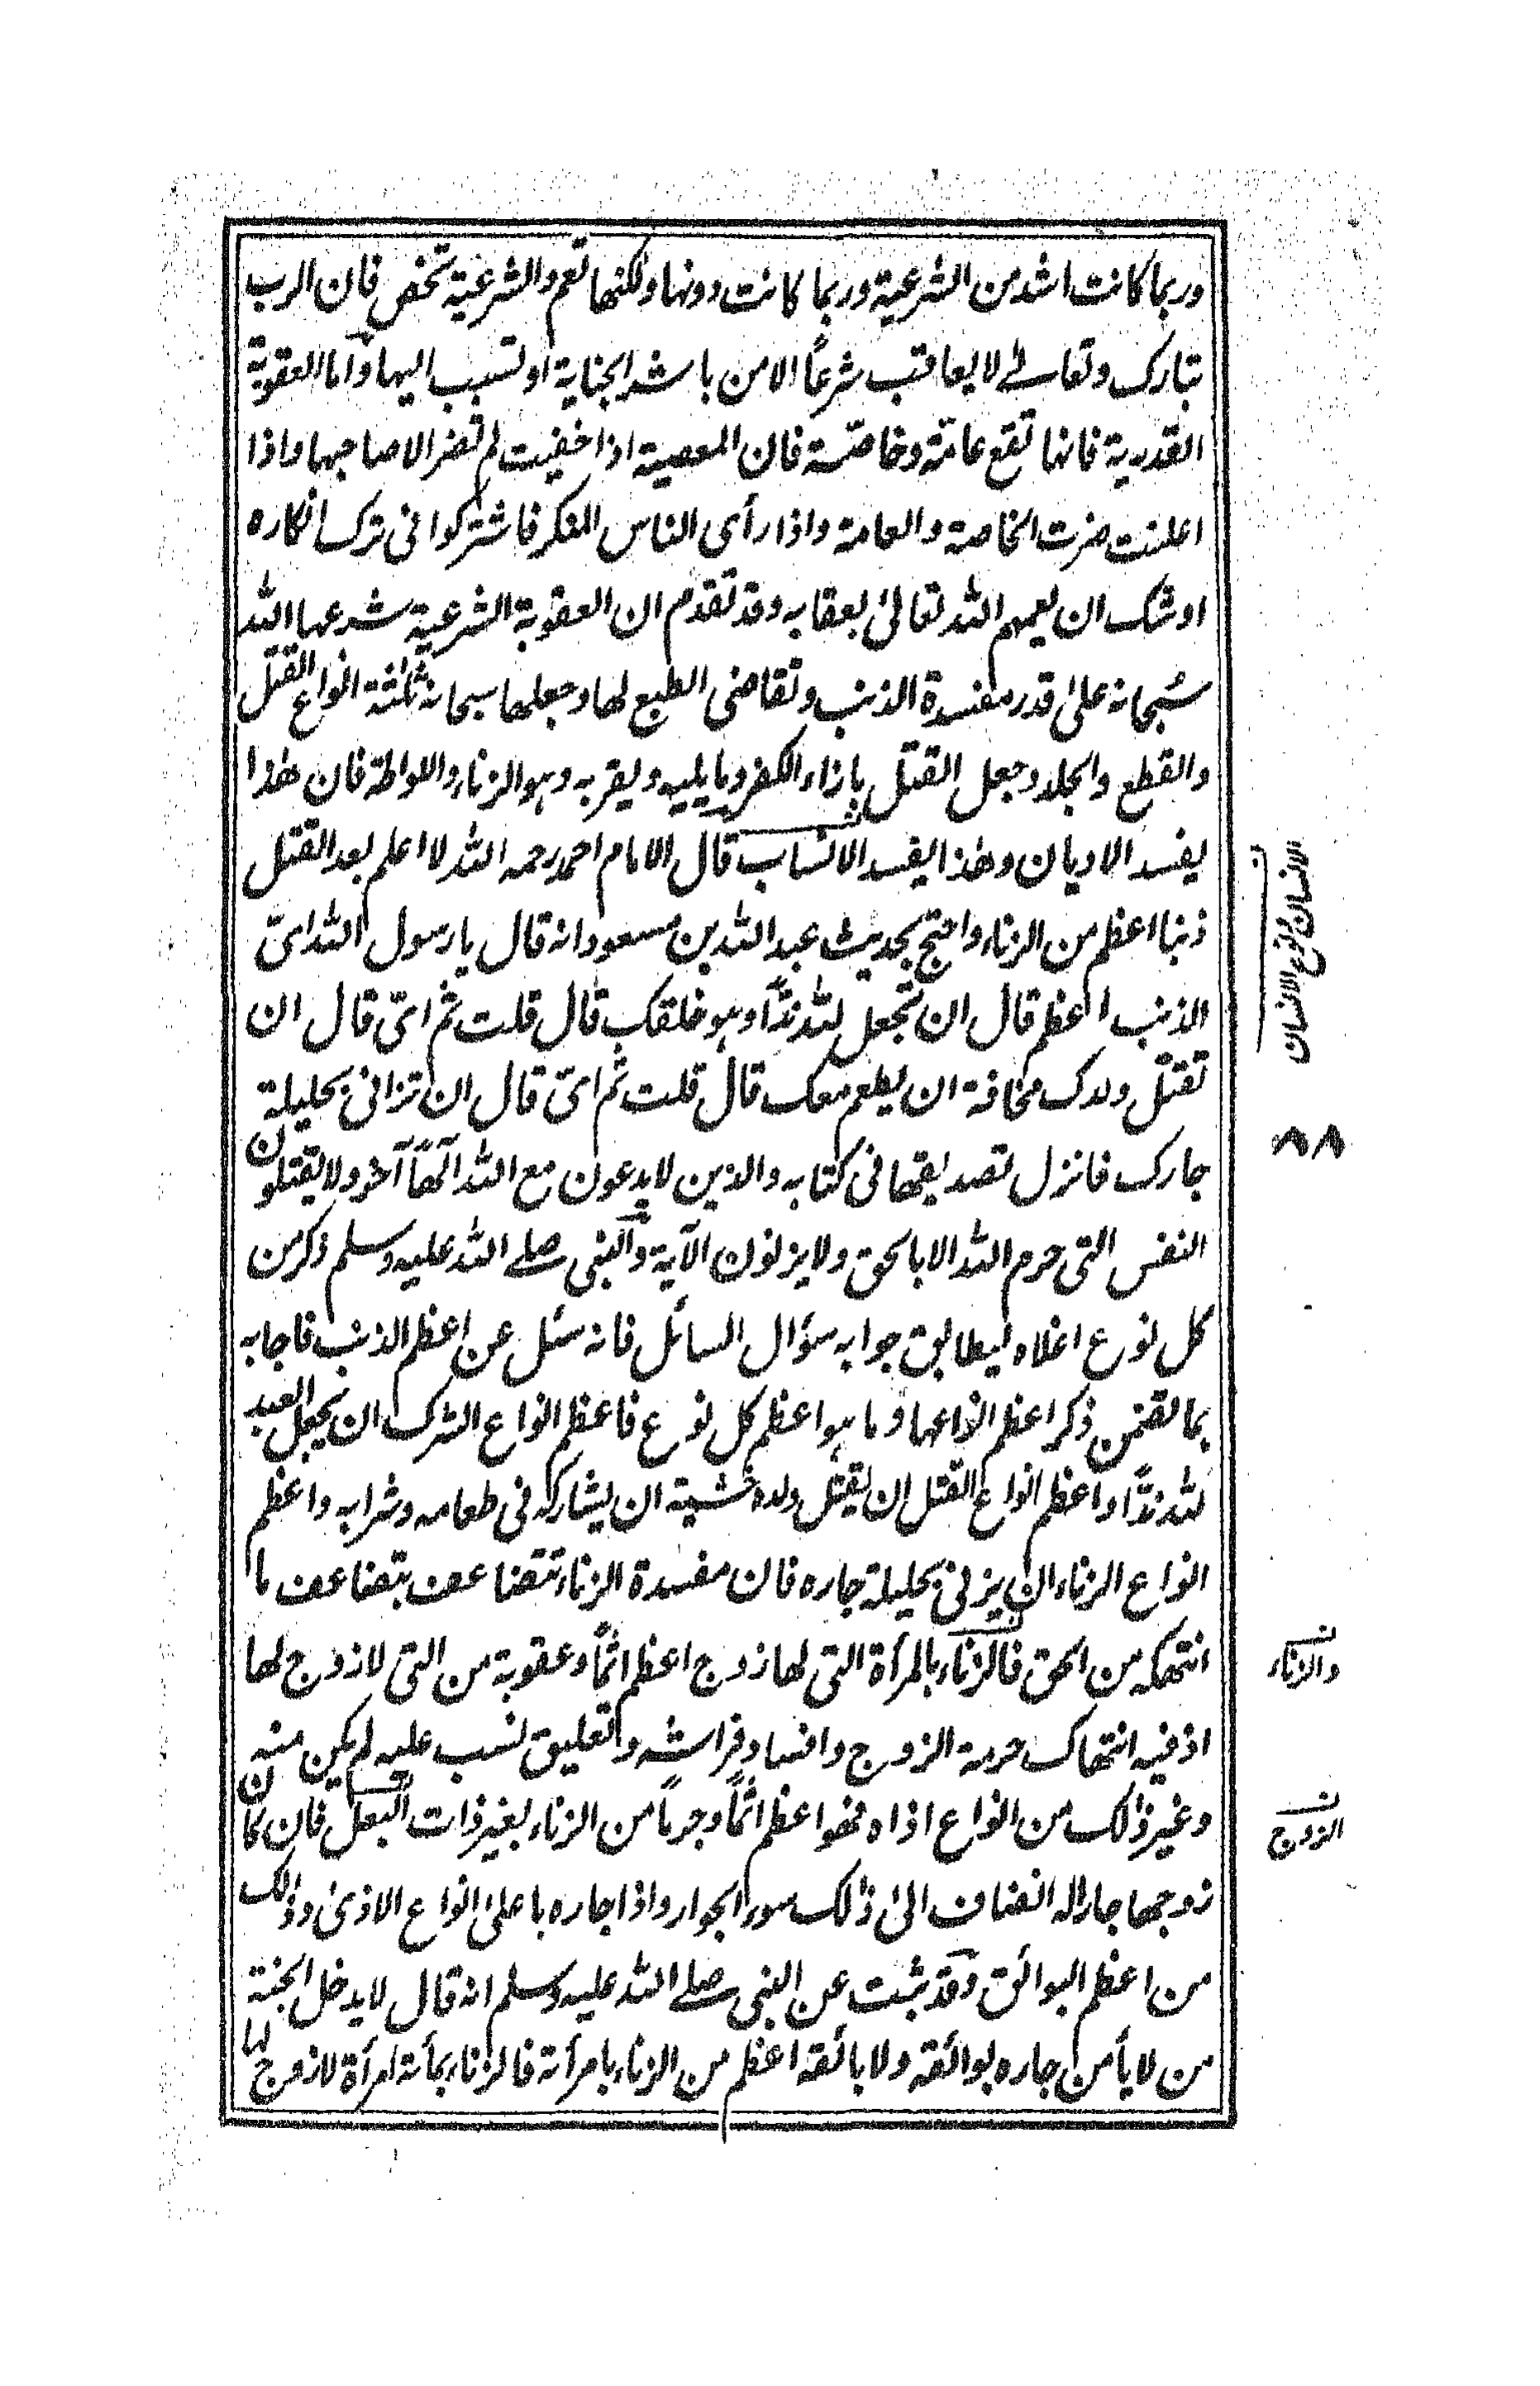 وربما كانت اشد من الشرعية وربما كانت دونها ولكنها تعم والشرعية تخص فان الرب
تبارك وتعالى لا يعاقب شرعًا الا من باشر الجناية او تسبب اليها واما العقوبة
القدرية فانها تقع عامّة وخاصّة فان المعصية اذا خفيت لم تضر الا صاحبها واذا
اعلنت ضرت الخاصة والعامة واذا رأى الناس المنكر فاشتركوا فى ترك انكاره
اوشك ان يعمهم الله تعالىٰ بعقابه وقد تقدم ان العقوبة الشرعية شرعها الله
سُبحانه علىٰ قدر مفسدة الذنب وتقاضى الطبع لها وجعلها سبحانه ثلٰثة انواع القتل
والقطع والجلد وجعل القتل بازاء الكفر وما يليه ويقربه وهو الزناء واللواطة فان هٰذا
يفسد الاديان وهٰذا يفسد الانساب قال الامام احمد رحمه الله لا اعلم بعد القتل
ذنبا اعظم من الزناء واحتج بحديث عبد الله بن مسعود انه قال يا رسول الله اىّ
الذنب اعظم قال ان تجعل لله ندًّا وهو خلقك قال قلت ثم اىّ قال ان
تقتل ولدك مخافة ان يطعم معك قال قلت ثم اىّ قال ان تزانى بحليلة
جارك فانزل تصديقها فى كتابه والذين لا يدعون مع الله آلهًا آخر ولا يقتلون
النفس التى حرم الله الا بالحق ولا يزنون الآية والنبى صلى الله عليه وسلم ذكر من
كل نوع اعلاه ليطابق جوابه سؤال السائل فانه سئل عن اعظم الذنب فاجابه
بما تضمن ذكر اعظم انواعها وما هو اعظم كل نوع فاعظم انواع الشرك ان يجعل العبد
لله ندًّا واعظم انواع القتل ان يقتل ولده خشية ان يشاركه فى طعامه وشرابه واعظم
انواع الزناء ان يزنى بحليلة جاره فان مفسدة الزناء تتضاعف بتضاعف ما
انتهكه من الحق فالزناء بالمرأة التى لها زوج اعظم اثمًا وعقوبة من التى لا زوج لها
اذ فيه انتهاك حرمة الزوج وافساد فراشه وتعليق نسب عليه لم يكن منه
وغير ذٰلك من انواع اذاه فهو اعظم اثمًا وجرمًا من الزناء بغير ذات البعل فان كان
زوجها جارا له انضاف الىٰ ذٰلك سوء الجوار واذا جاره باعلىٰ انواع الاذىٰ وذٰلك
من اعظم البوائق وقد ثبت عن النبى صلى الله عليه وسلم انه قال لا يدخل الجنة
من لا يأمن جاره بوائقه ولا بائقة اعظم من الزناء بامرأته فالزناء بمأته امرأة لا زوج لها
الانسان نوع الانسان
٨٨
والزناء
الزوج